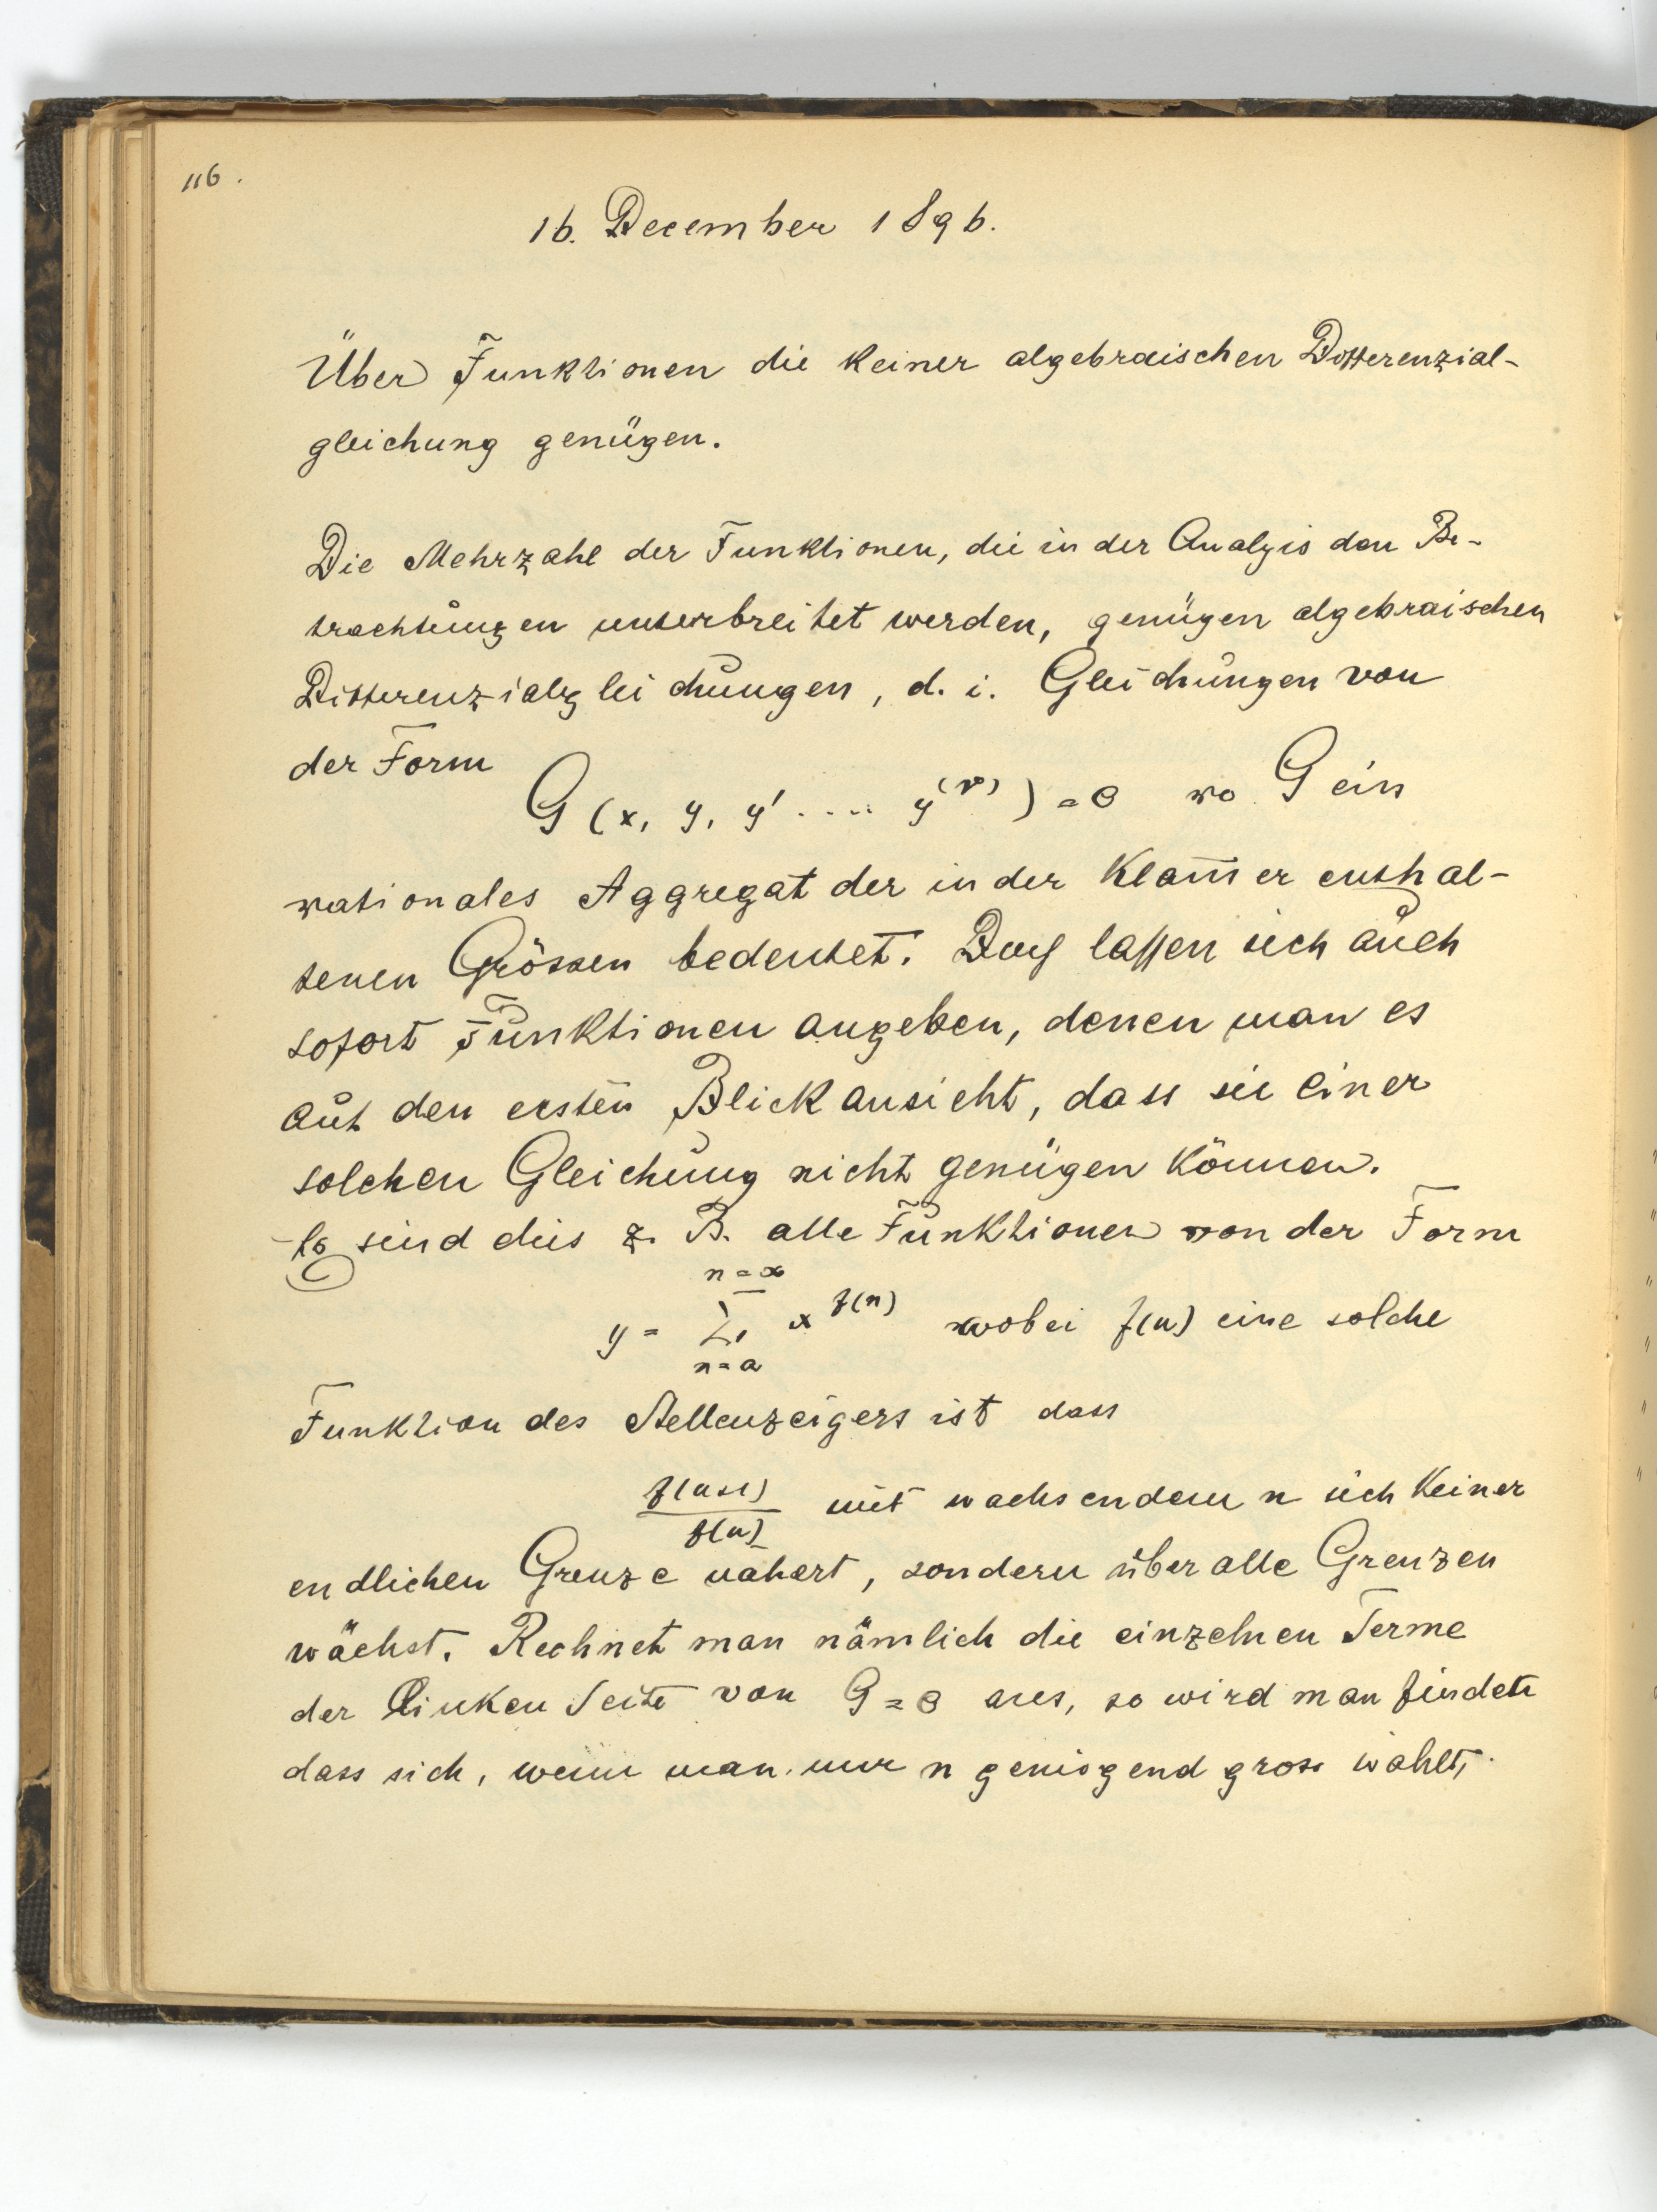 116.
16. December 1896.
Über Funktionen die keiner algebraischen Differenzial-
gleichung genügen.
Die Mehrzahl der Funktionen, die in der Analyis den Be-
trachtungen unterbreitet werden, genügen algebraischen
Differenzialgleichungen, d. i. Gleichungen von
der Form
G (x, y, y' .... y^(ν)) = 0 wo G ein
rationales Aggregat der in der Klam̄er enthal-
tenen Grössen bedeutet. Doch lassen sich auch
sofort Funktionen angeben, denen man es
auf den ersten Blick ansieht, dass sie einer
solchen Gleichung nicht genügen können.
Es sind dies z. B. alle Funktionen von der Form
n=∞
y = Σ x^f(n) wobei f(n) eine solche
n=a
Funktion des Stellenzeigers ist dass
f(n+1)/f(n) mit wachsendem n sich keiner
endlichen Grenze nähert, sondern über alle Grenzen
wächst. Rechnet man nämlich die einzelnen Terme
der linken Seite von G=0 aus, so wird man finden
dass sich, wenn man nur n genügend gross wählt,